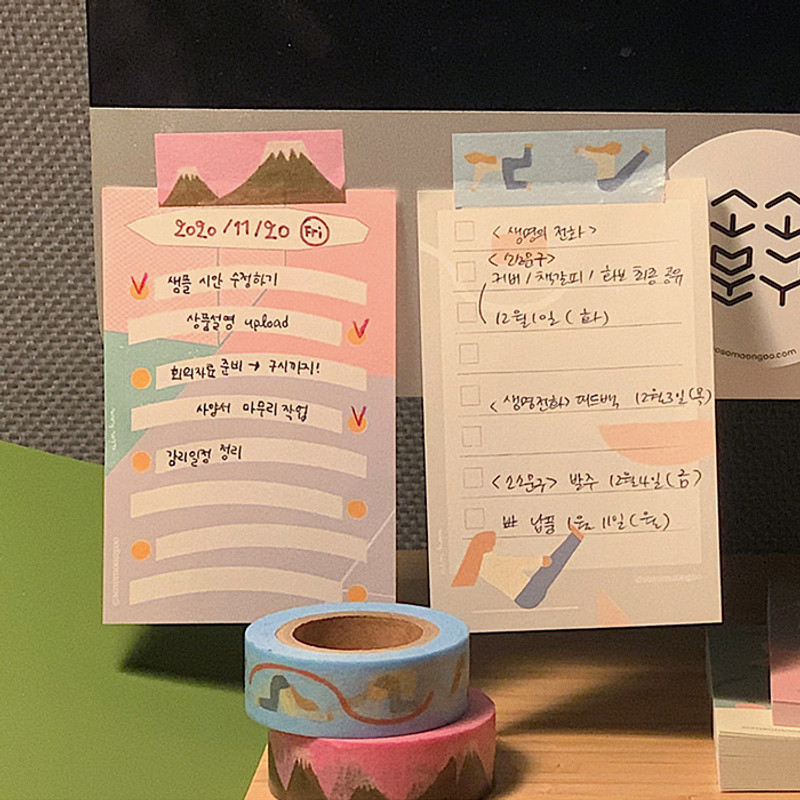 2020/11/20 Fri
샘플 시안 수정하기
상품설명 upload
회의자료 준비 → 9시까지!
사양서 마무리 작업
감리일정 정리
<생명의 전화>
<소소문구>
커버 / 책갈피 / 화보 최종 공유
12월 1일 (화)
<생명전화> 피드백 12월 3일 (목)
<소소문구> 발주 12월 4일 (금)
납품 1월 11일 (월)
sosomoongoo.com